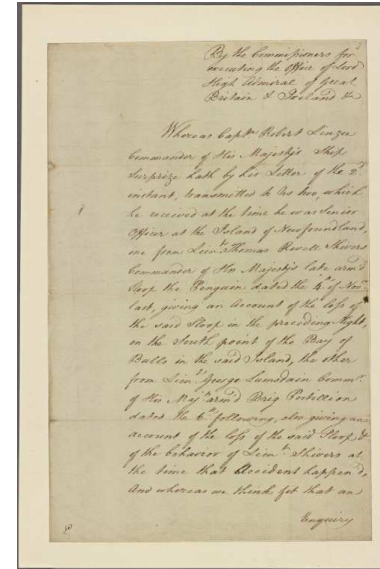 By the Commissioners for
executing the Office of Lord
High Admiral of Great
Britain & Ireland &c
Whereas Captn Robert Linzee
Commander of His Majesty's Ship
Surprize hath by his Letter of the 2d
instant, transmitted to Us two, which
he received at the time he was Senior
Officer at the Island of Newfoundland,
one from Lieut Thomas Revell Shivers
Commander of His Majesty's late arm'd
Sloop the Penguin dated the 4th of Novr
last, giving an Account of the loss of
the said Sloop in the preceding Night,
on the South point of the Bay of
Bulls in the said Island, the other
from Lieut George Lumsdain Commr
of His Majts arm'd Brig Postillion
dated the 6th following, also giving an
account of the loss of the said Sloop &
of the behavior of Lieut Shivers at
the time that Accident happen'd,
And whereas we think fit that an
Enquiry